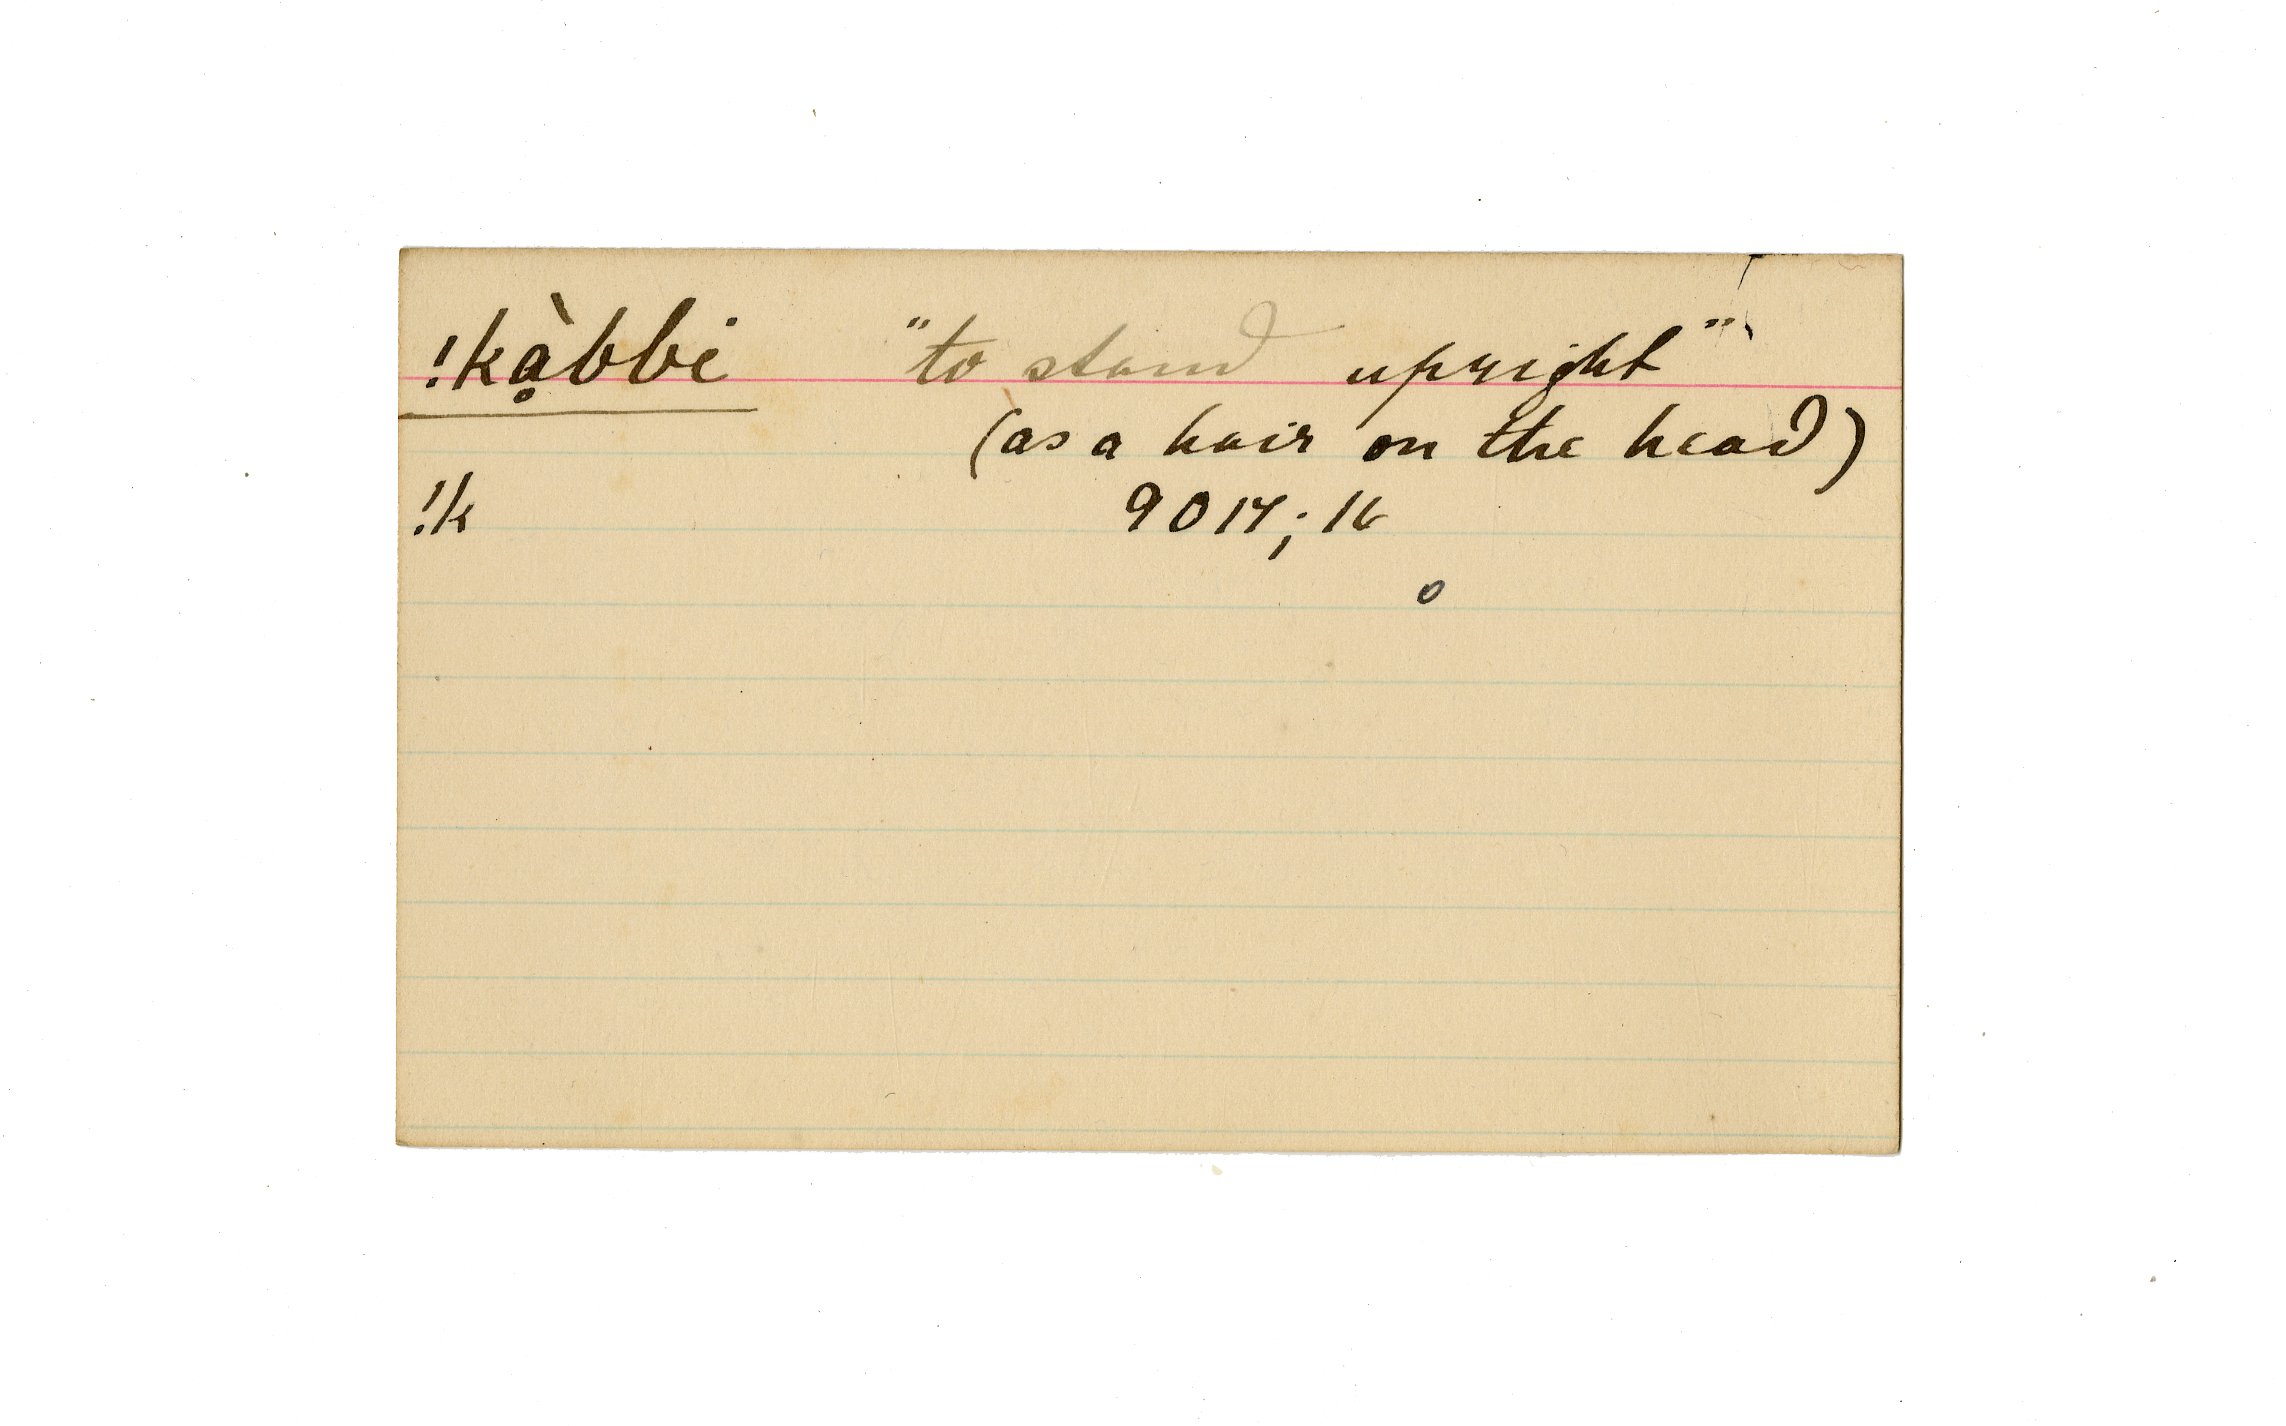 !kạ̀bbi "to stand upright"
(as a hair on the head)
!k 9014; 16
o